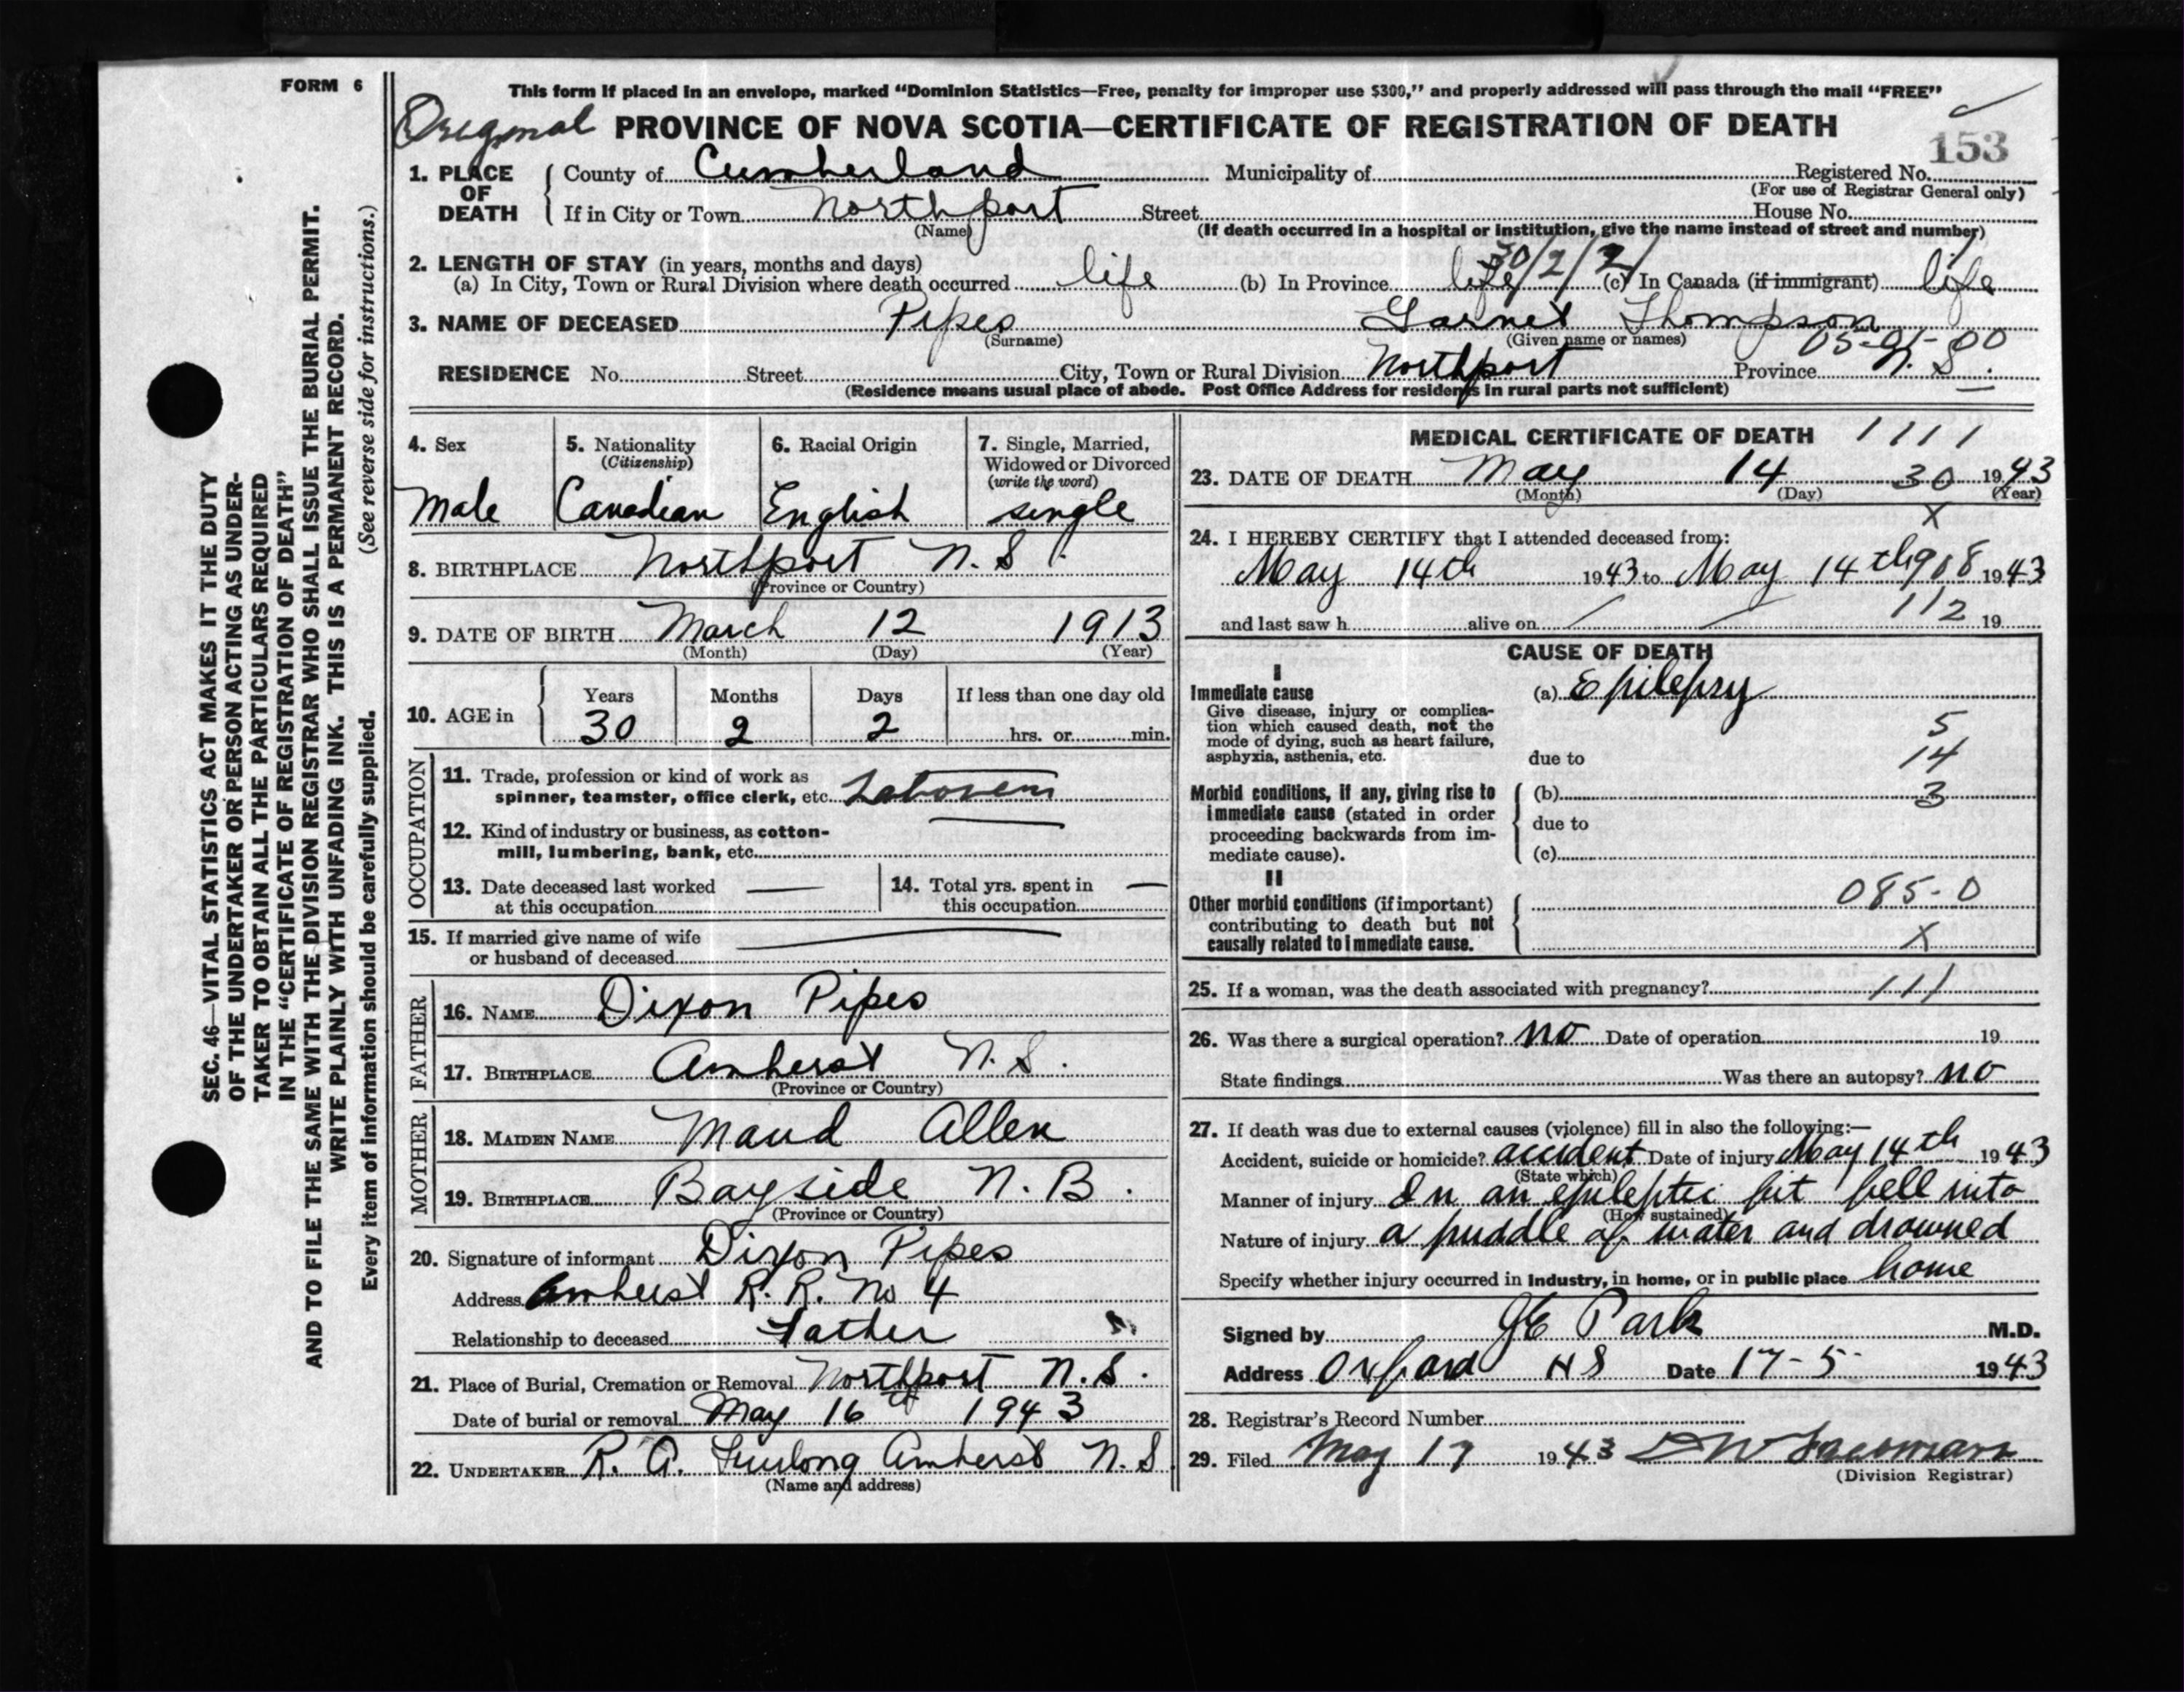 FORM 6
SEC. 46—VITAL STATISTICS ACT MAKES IT THE DUTY
OF THE UNDERTAKER OR PERSON ACTING AS UNDER-
TAKER TO OBTAIN ALL THE PARTICULARS REQUIRED
IN THE "CERTIFICATE OF REGISTRATION OF DEATH"
AND TO FILE THE SAME WITH THE DIVISION REGISTRAR WHO SHALL ISSUE THE BURIAL PERMIT.
WRITE PLAINLY WITH UNFADING INK. THIS IS A PERMANENT RECORD.
Every item of information should be carefully supplied. (See reverse side for instructions.)
This form if placed in an envelope, marked "Dominion Statistics—Free, penalty for improper use $300," and properly addressed will pass through the mail "FREE"
Original PROVINCE OF NOVA SCOTIA—CERTIFICATE OF REGISTRATION OF DEATH
153
1. PLACE OF DEATH County of Cumberland Municipality of Registered No.
(For use of Registrar General only)
If in City or Town Northport Street House No.
(Name) (If death occurred in a hospital or institution, give the name instead of street and number)
2. LENGTH OF STAY (in years, months and days) 30/2/2/
(a) In City, Town or Rural Division where death occurred life (b) In Province life (c) In Canada (if immigrant) life
3. NAME OF DECEASED Pipes Garnet Thompson
(Surname) (Given name or names) 05-91-00
RESIDENCE No. Street City, Town or Rural Division Northport Province N.S.
(Residence means usual place of abode. Post Office Address for residents in rural parts not sufficient)
4. Sex 5. Nationality 6. Racial Origin 7. Single, Married,
(Citizenship) Widowed or Divorced
(write the word)
Male Canadian English single
8. BIRTHPLACE Northport N.S.
(Province or Country)
9. DATE OF BIRTH March 12 1913
(Month) (Day) (Year)
10. AGE in Years Months Days If less than one day old
30 2 2 hrs. or min.
OCCUPATION
11. Trade, profession or kind of work as
spinner, teamster, office clerk, etc.
12. Kind of industry or business, as cotton-
mill, lumbering, bank, etc.
13. Date deceased last worked — 14. Total yrs. spent in —
at this occupation this occupation
15. If married give name of wife
or husband of deceased
FATHER
16. NAME Dixon Pipes
17. BIRTHPLACE Amherst N.S.
(Province or Country)
MOTHER
18. MAIDEN NAME Maud Allen
19. BIRTHPLACE Bayside N.B.
(Province or Country)
20. Signature of informant Dixon Pipes
Address Amherst R.R. No 4
Relationship to deceased Father
21. Place of Burial, Cremation or Removal Northport N.S.
Date of burial or removal May 16th 1943
22. UNDERTAKER R. A. Furlong Amherst N.S.
(Name and address)
MEDICAL CERTIFICATE OF DEATH 1111
23. DATE OF DEATH May 14 30 1943
(Month) (Day) (Year)
X
24. I HEREBY CERTIFY that I attended deceased from:
May 14th 1943 to May 14th 908 1943
112
and last saw h alive on 19
CAUSE OF DEATH
I
Immediate cause (a) Epilepsy
Give disease, injury or complica-
tion which caused death, not the
mode of dying, such as heart failure,
asphyxia, asthenia, etc. due to
5
14
3
Morbid conditions, if any, giving rise to (b)
immediate cause (stated in order due to
proceeding backwards from im-
mediate cause). (c)
II
Other morbid conditions (if important) 085-0
contributing to death but not
causally related to immediate cause. X
25. If a woman, was the death associated with pregnancy? 111
26. Was there a surgical operation? no Date of operation 19
State findings Was there an autopsy? no
27. If death was due to external causes (violence) fill in also the following:—
Accident, suicide or homicide? accident Date of injury May 14th 1943
(State which)
Manner of injury In an epileptic fit fell into
(How sustained)
Nature of injury a puddle of water and drowned
Specify whether injury occurred in industry, in home, or in public place home
Signed by JE Park M.D.
Address Oxford NS Date 17-5- 1943
28. Registrar's Record Number
29. Filed May 17 1943
(Division Registrar)